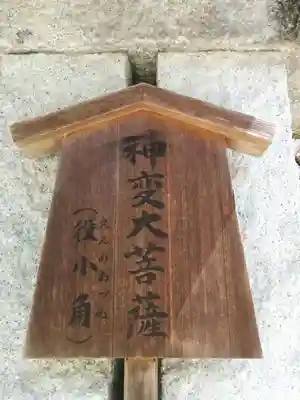 神変大菩薩
(役小角)
えんのおづぬ